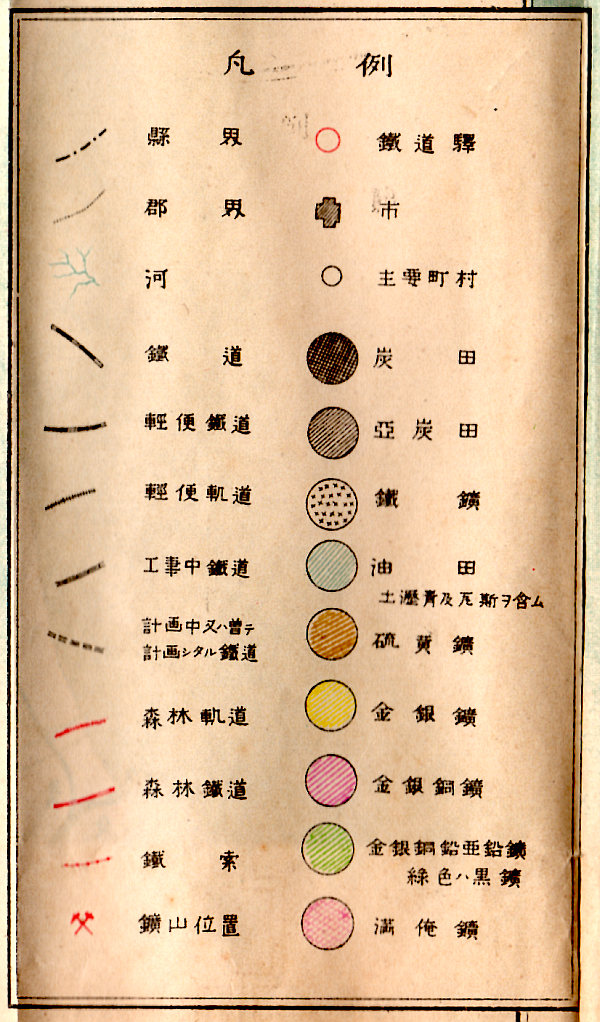 凡例
縣界
郡界
河
鐵道
輕便鐵道
輕便軌道
工事中鐵道
計画中又ハ曽テ
計画シタル鐵道
森林軌道
森林鐵道
鐵索
鑛山位置
鐵道驛
市
主要町村
炭田
亞炭田
鐵鑛
油田
土瀝青及瓦斯ヲ含ム
硫黄鑛
金銀鑛
金銀銅鑛
金銀銅鉛亜鉛鑛
綠色ハ黒鑛
満俺鑛